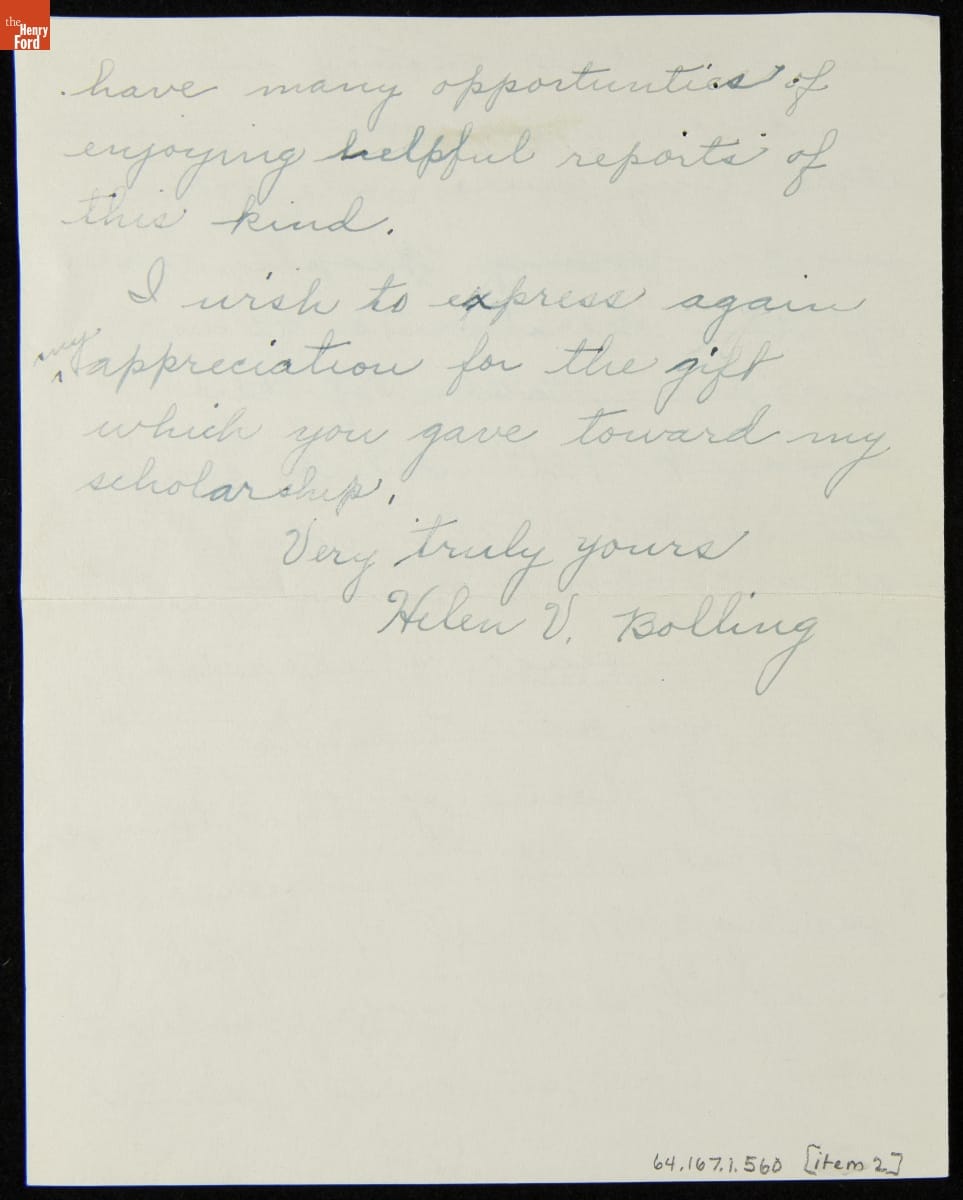 the
Henry
Ford
have many opportunties of
enjoying helpful reports of
this kind.
I wish to express again
my
appreciation for the gift
which you gave toward my
scholarship.
Very truly yours
Helen V. Bolling
64.167.1.560 [item 2]